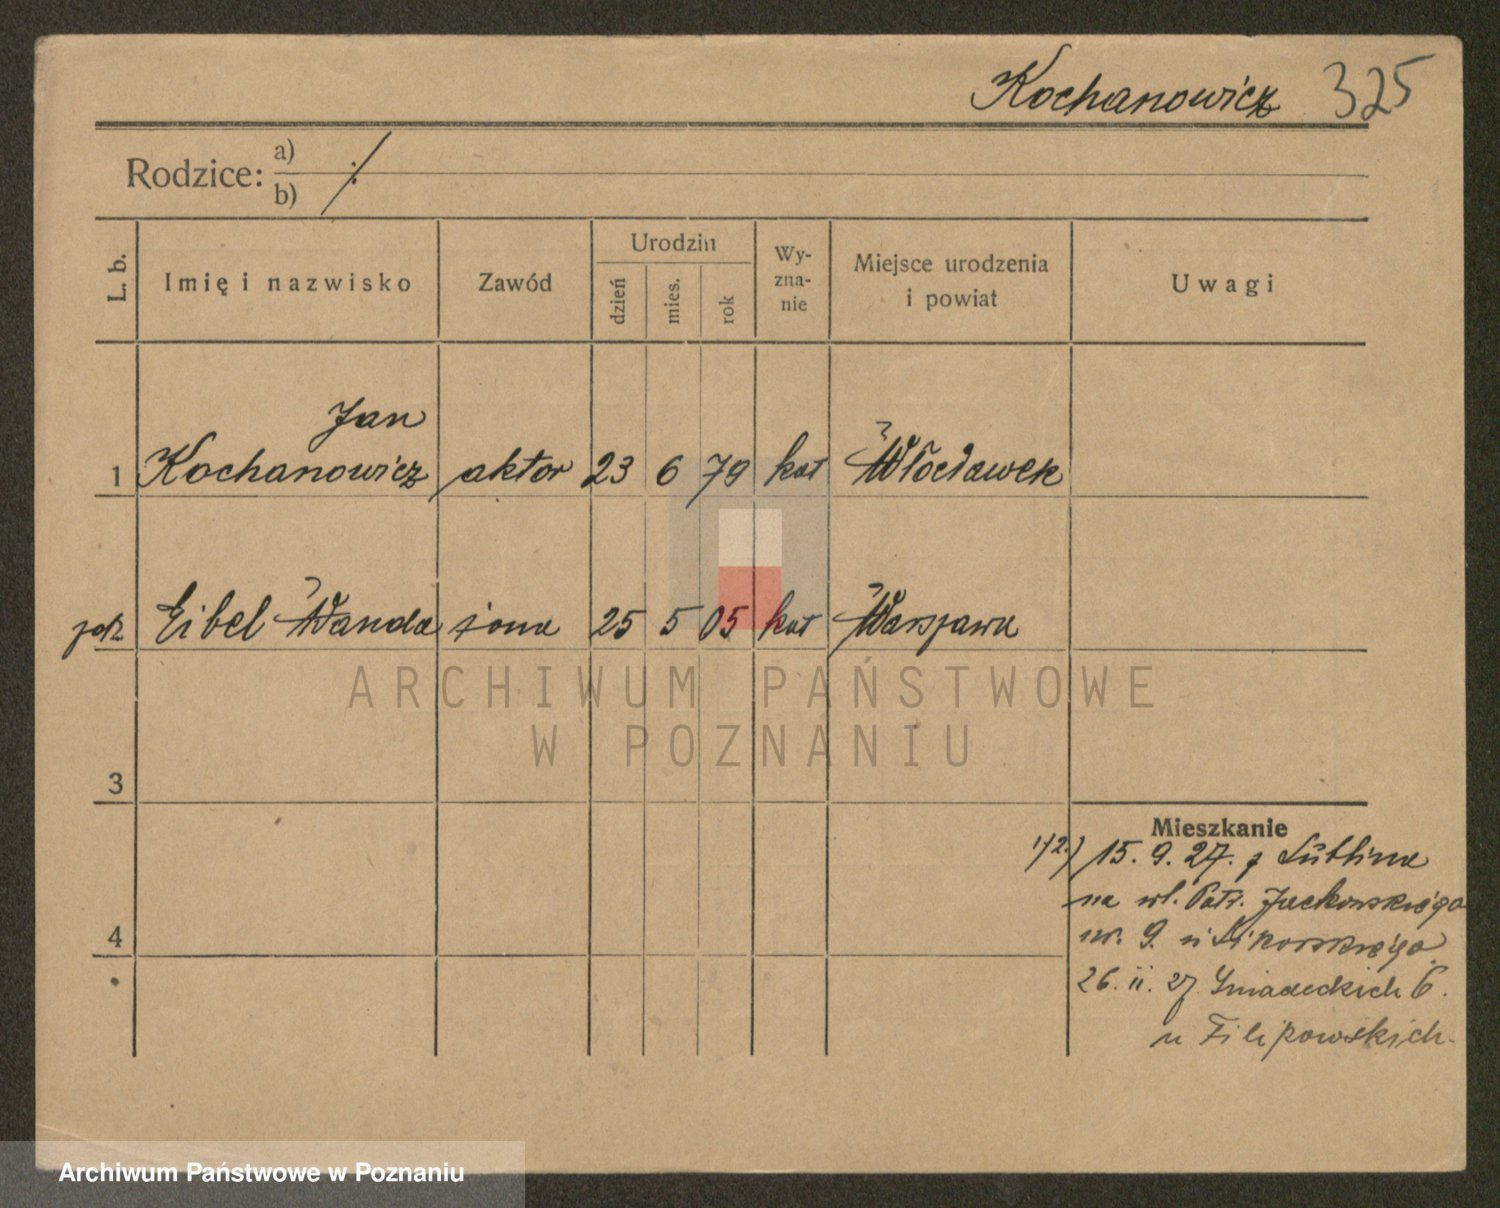 Kochanowicz 325
Rodzice: a)
b)
L. b.
Imię i nazwisko
Zawód
Urodzin
dzień
mies.
rok
Wy-
zna-
nie
Miejsce urodzenia
i powiat
Uwagi
Jan
1 Kochanowicz aktor 23 6 79 kat Włocławek
Eibel Wanda żona 25 5 05 kat Warszawa
3
4
Mieszkanie
1/2.) 15. 9. 27. z Lublina
na wł. Patr. Jackowskiego
nr. 9. u Sikorskiego
26. 11. 27. Śniadeckich 6.
u Filipowskich.
ARCHIWUM PAŃSTWOWE
W POZNANIU
Archiwum Państwowe w Poznaniu